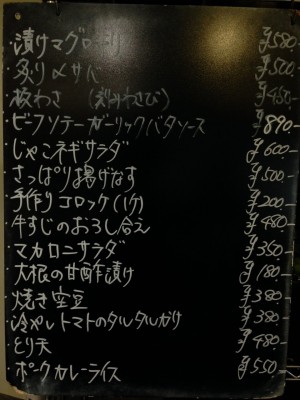 ・漬けマグロ ¥580-
・炙り〆サバ ¥500-
・板わさ ¥450-
・ビフソテーガーリックバタソース ¥890-
・じゃこネギサラダ ¥600-
・さっぱり揚げなす ¥500-
・手作りコロッケ(1ケ) ¥200-
・牛すじのおろし合え ¥480-
・マカロニサラダ ¥350-
・大根の甘酢漬け ¥180-
・焼き空豆 ¥380-
・冷やしトマトのタルタルがけ ¥380-
・とり天 ¥480-
・ポークカレーライス ¥550-